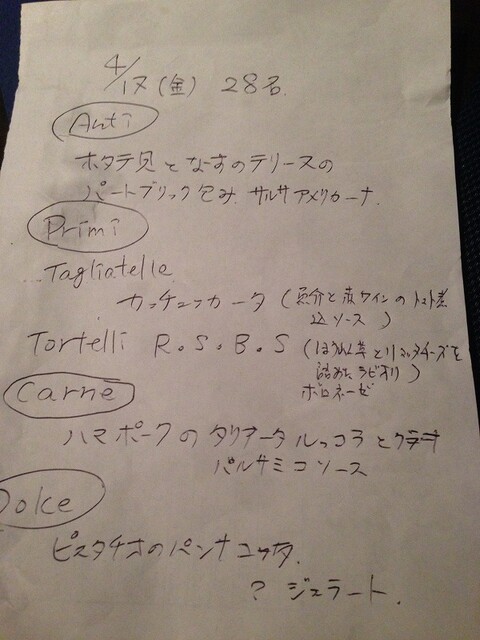 4/17(金) 28名.
Anti
ホタテ貝となすのテリーヌの
パートブリック包み. サルサアメリカーナ.
Primi
Tagliatelle
カッチュッカータ (魚介と赤ワインのトマト煮
込ソース)
Tortelli R.S.B.S (ほうれん草とリコッタチーズを
詰めたラビオリ)
ボロネーゼ
Carne
ハマポークのタリアータ ルッコラと
バルサミコソース
Dolce
ピスタチオのパンナコッタ.
? ジェラート.